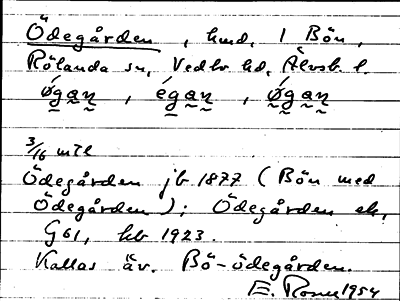 Ödegården, hmd, 1 Bön,
Rölanda sn, Vedbo hd, Älvsb. l.
øgan, égan, ǿgan
3/16 mtl
Ödegården jb 1877 (Bön med
Ödegården); Ödegården ek,
G61, hb 1923.
Kallas äv. Bö-ödegården.
E. 1954